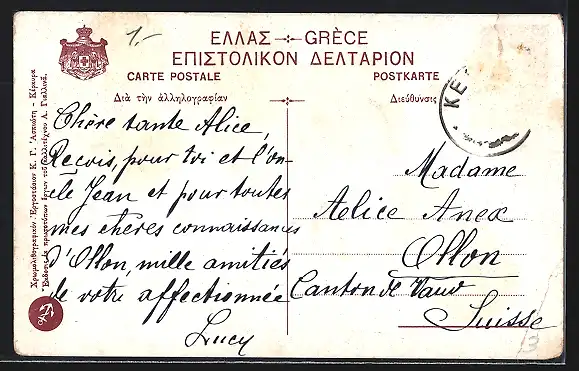 1.-
ΕΛΛΑΣ GRÈCE
ΕΠΙΣΤΟΛΙΚΟΝ ΔΕΛΤΑΡΙΟΝ
CARTE POSTALE
POSTKARTE
Διὰ τὴν ἀλληλογραφίαν
Διεύθυνσις
ΚΕ
Chère tante Alice,
Reçois, pour toi et l'on-
cle Jean et pour toutes
mes chères connaissances
d'Ollon, mille amitiés
de votre affectionnée
Lucy
Madame
Alice Anex
Ollon
Canton de Vaud
Suisse
3
Χρωμολιθογραφικὸν Ἐργοστάσιον Κ. Γ. Ἀσπιώτη - Κέρκυρα
Ἔκδοσις ἐκ πρωτοτύπων ἔργων τοῦ καλλιτέχνου Α. Γιαλλινᾶ.